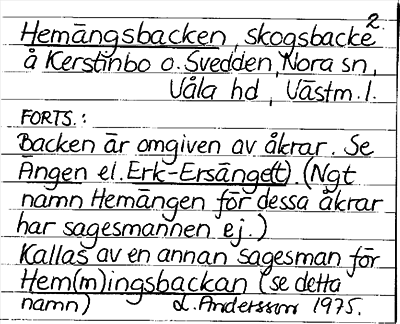 2
Hemängsbacken, skogsbacke
å Kerstinbo o. Svedden, Nora sn,
Våla hd, Västm. l.
FORTS.:
Backen är omgiven av åkrar. Se
Ängen el. Erk-Ersänge(t). (Ngt
namn Hemängen för dessa åkrar
har sagesmannen ej.)
Kallas av en annan sagesman för
Hem(m)ingsbackan (se detta
namn) L. Andersson 1975.